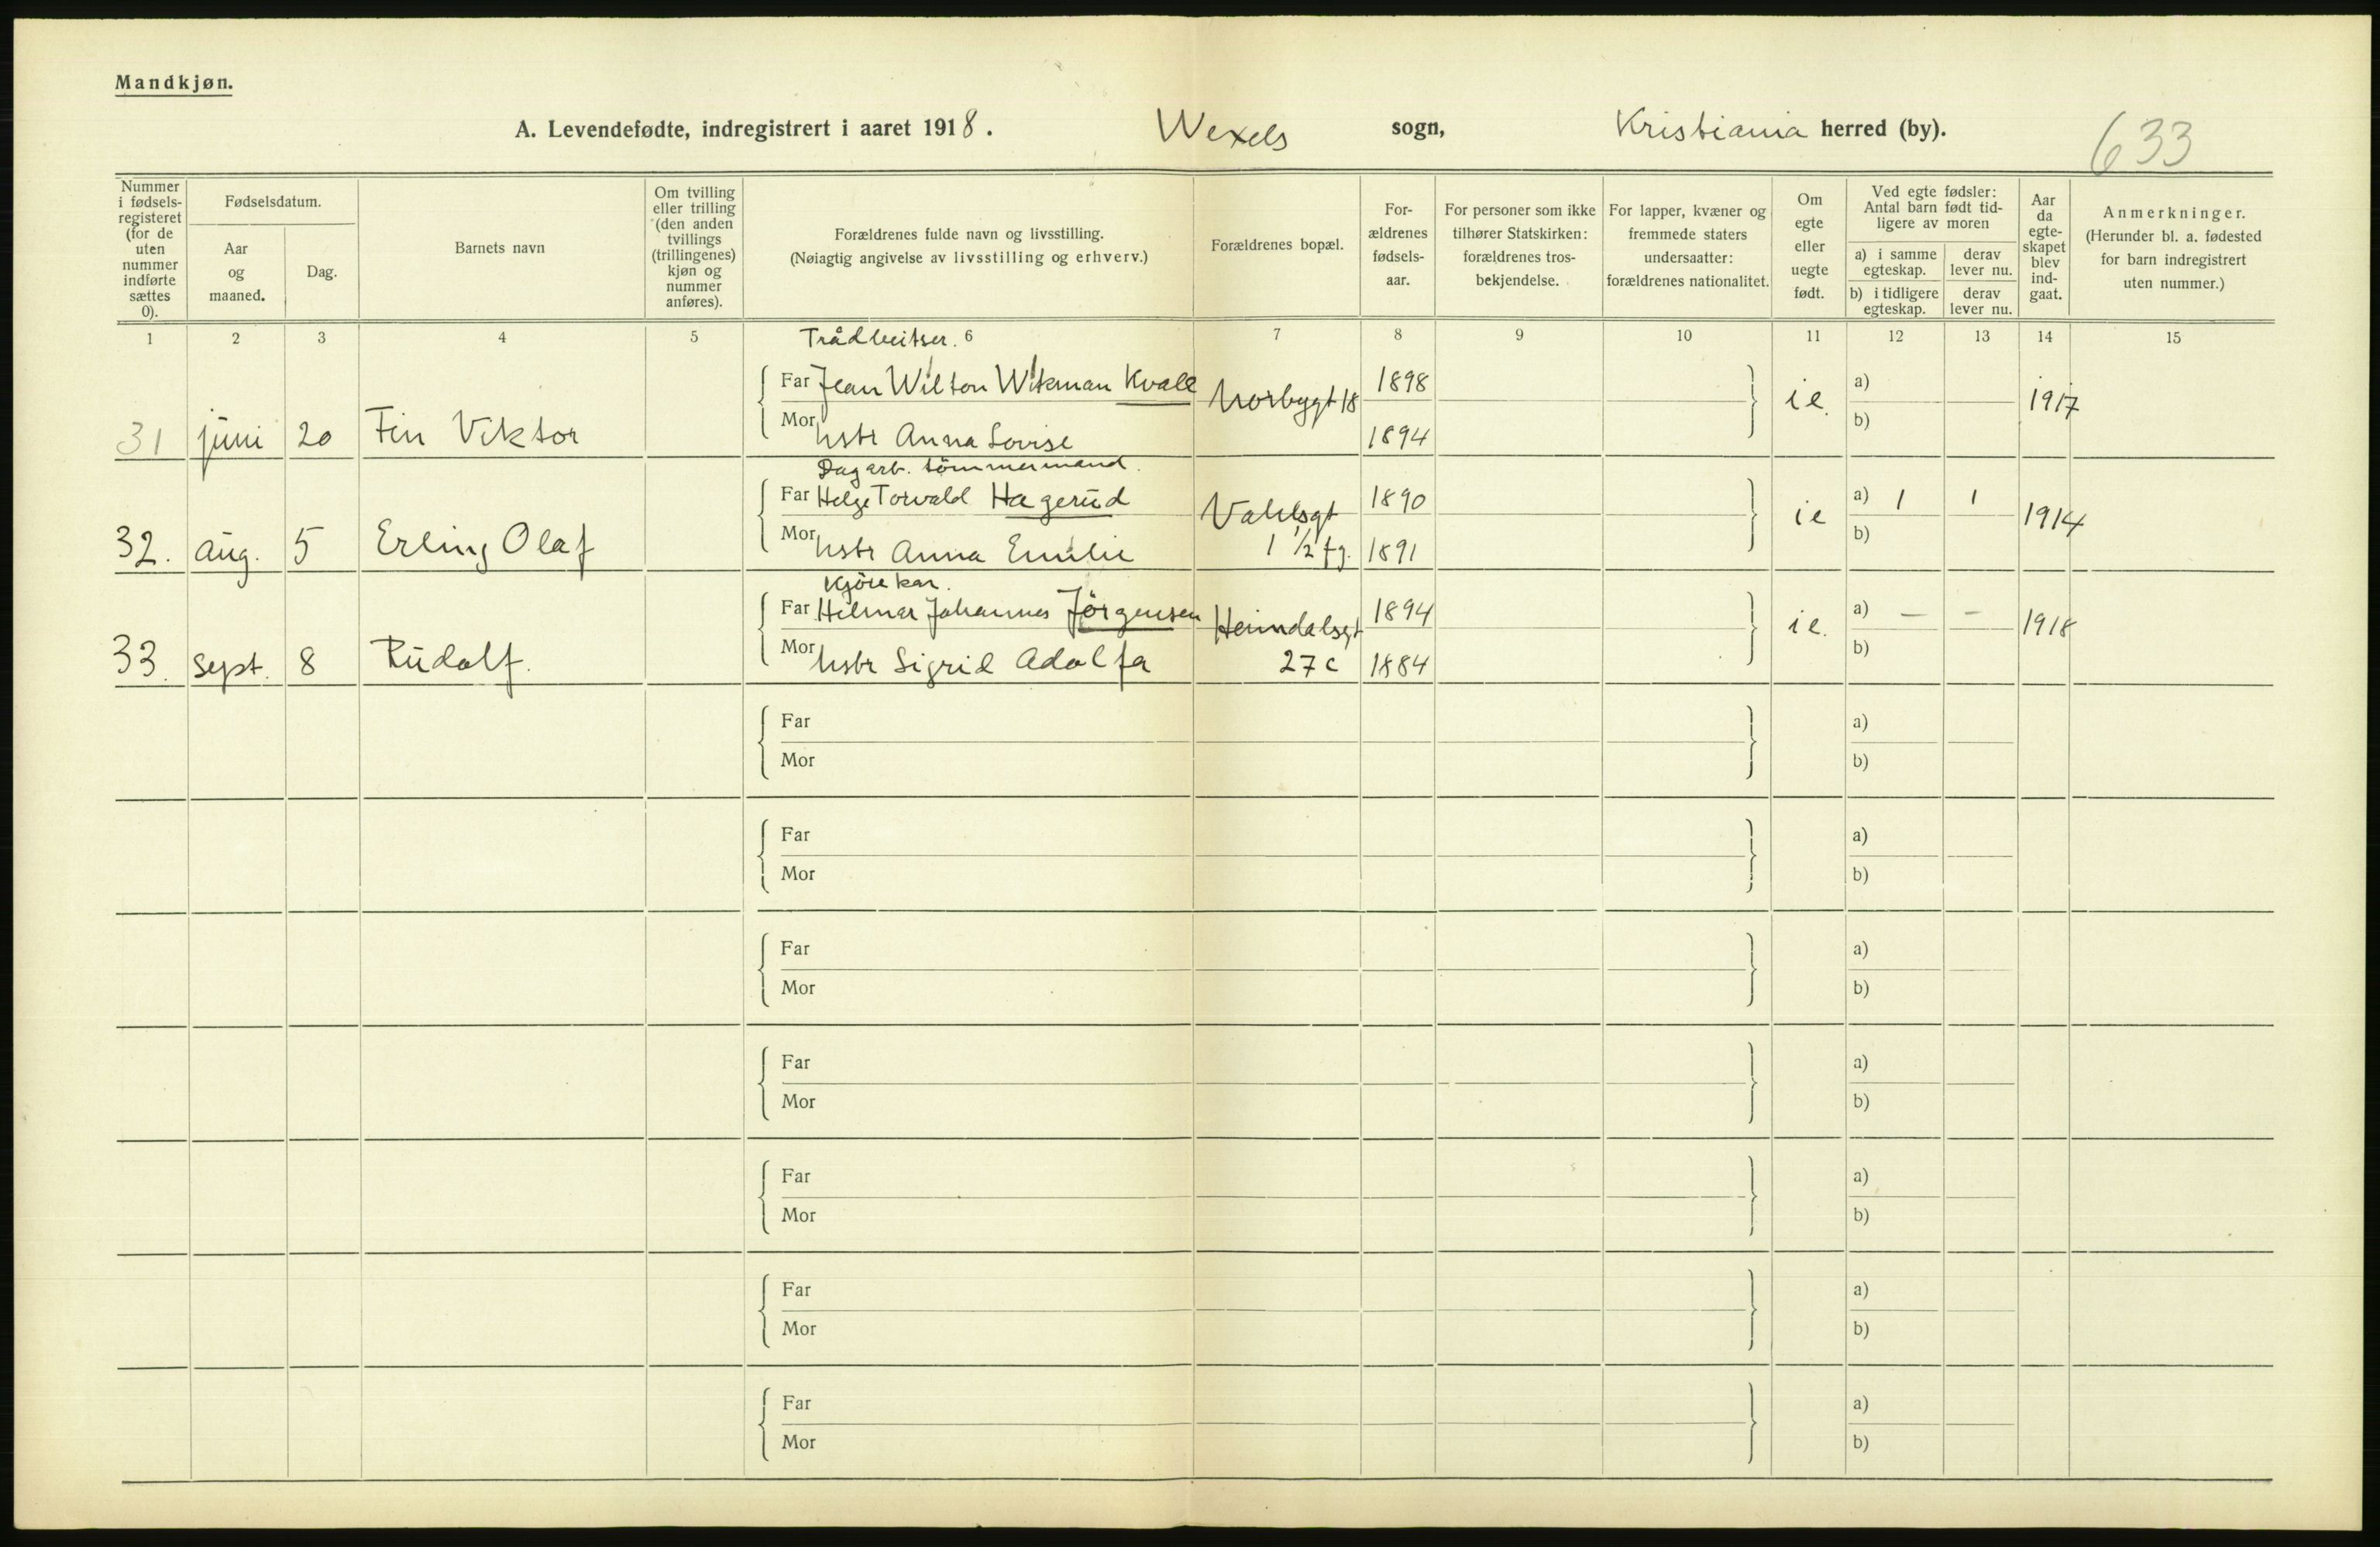 Mandkjøn.
A. Levendefødte, indregistrert i aaret 1918. Wexels sogn, Kristiania herred (by). 633
Nummer i fødsels-registeret (for de uten nummer indførte sættes 0).
Fødselsdatum.
Aar og maaned.
Dag.
Barnets navn
Om tvilling eller trilling (den anden tvillings (trillingenes) kjøn og nummer anføres).
Forældrenes fulde navn og livsstilling.
(Nøiagtig angivelse av livsstilling og erhverv.)
Forældrenes bopæl.
For-ældrenes fødsels-aar.
For personer som ikke tilhører Statskirken: forældrenes tros-bekjendelse.
For lapper, kvæner og fremmede staters undersaatter: forældrenes nationalitet.
Om egte eller uegte født.
Ved egte fødsler: Antal barn født tid-ligere av moren
a) i samme egteskap.
derav lever nu.
b) i tidligere egteskap.
derav lever nu.
Aar da egte-skapet blev ind-gaat.
Anmerkninger.
(Herunder bl. a. fødested for barn indregistrert uten nummer.)
1 2 3 4 5 6 7 8 9 10 11 12 13 14 15
Far Jean Wilton Witkman Kvale 1898 a)
31 juni 20 Fin Viktor Norbygt 18 ie. 1917
Mor hstr Anna Lovise 1894 b)
Dagarb. tömmermand.
Far Helge Torvald Hagerud 1890 a) 1 1
32. aug. 5 Erling Olaf Vahlsgt 1 ½ fg. ie 1914
Mor hstr Anna Emilie 1891 b)
Kjörekar.
Far Hilmar Johannes Jörgensen 1894 a) — –
33. sept. 8 Rudolf. Heimdalsgt 27c ie. 1918
Mor hstr Sigrid Adolfa 1884 b)
Far a)
Mor b)
Far a)
Mor b)
Far a)
Mor b)
Far a)
Mor b)
Far a)
Mor b)
Far a)
Mor b)
Far a)
Mor b)